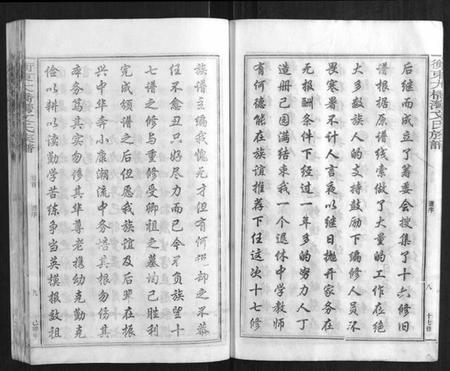 后继而成立了筹委会搜集了十六修旧
谱根据原谱线索做了大量的工作在绝
大多数族人的支持鼓励下编修人员不
畏寒暑不计人言夜以继日抛开家务在
无报酬条件下经过一年多的努力人丁
造册已圆满结束我一个退休中学教师
有何德能在族谊推荐下任这次十七修
八
十七修
衡东大桥湾文氏族谱
族谱主编我愧无才但有何推却之不恭
任不愈丑只好尽力而已令不负族望十
七谱之修与重修受卿祖之墓均已胜利
完成颁谱之后但愿我族谊及后辈在振
兴中华奔小康潮流中务惜其根勿伤其
本务笃其实勿修其华尊老携幼克勤克
俭以耕以读勤学苦练争当英模报效祖
九